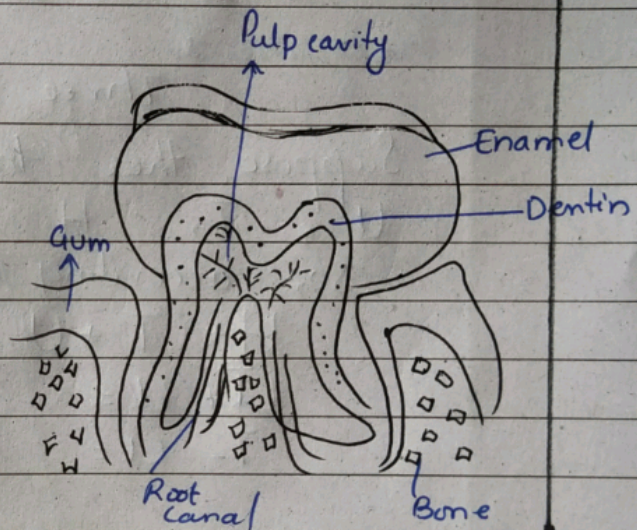 Pulp cavity
Enamel
Dentin
Gum
Root
Canal
Bone